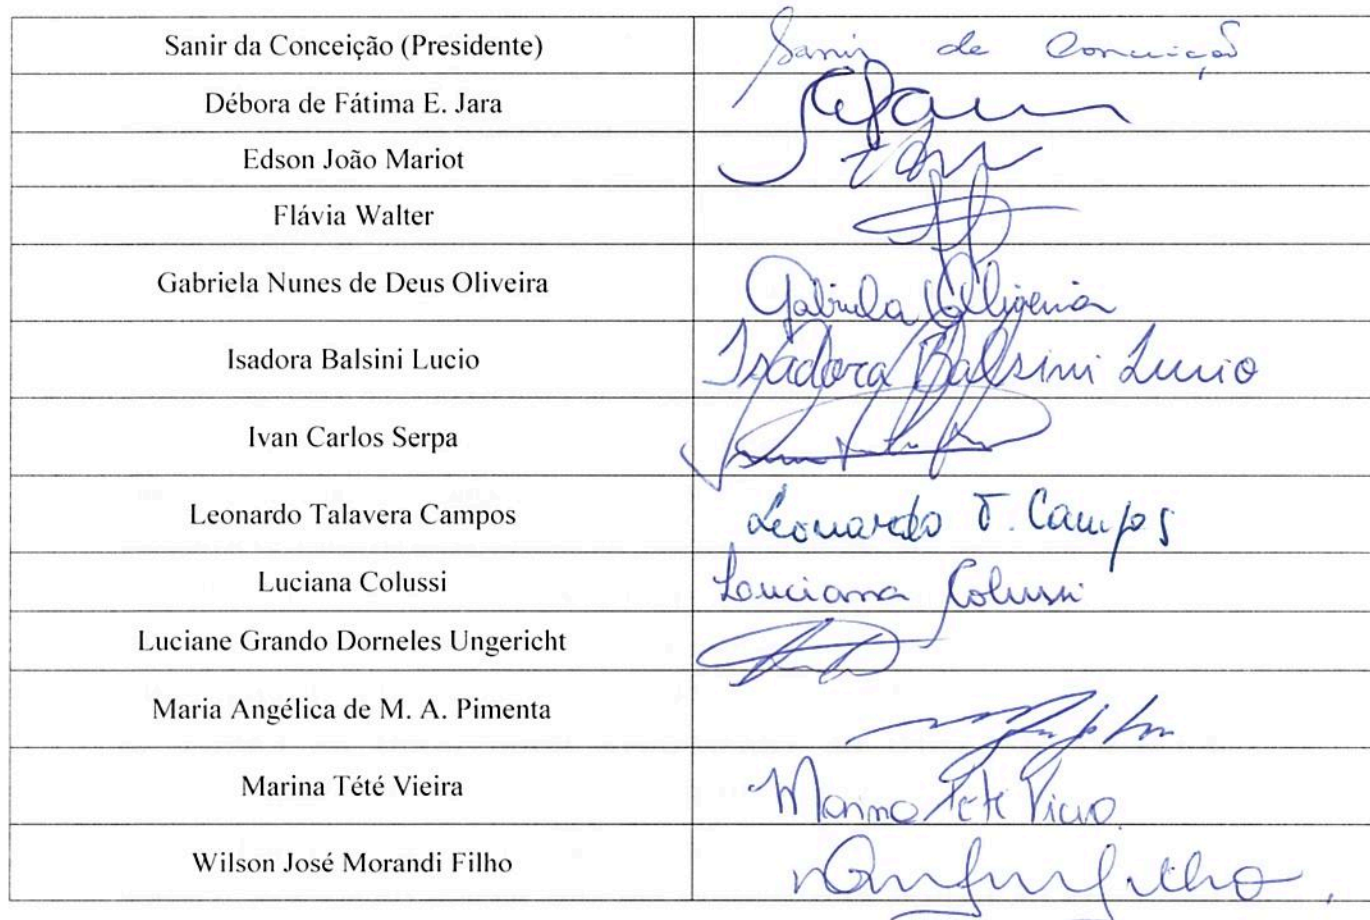 Sanir da Conceição (Presidente) Sanir da Conceição
Débora de Fátima E. Jara
Edson João Mariot
Flávia Walter
Gabriela Nunes de Deus Oliveira Gabriela Oliveira
Isadora Balsini Lucio Isadora Balsini Lucio
Ivan Carlos Serpa
Leonardo Talavera Campos Leonardo T. Campos
Luciana Colussi Luciana Colussi
Luciane Grando Dorneles Ungericht
Maria Angélica de M. A. Pimenta
Marina Tété Vieira Marina Tété Vieira
Wilson José Morandi Filho